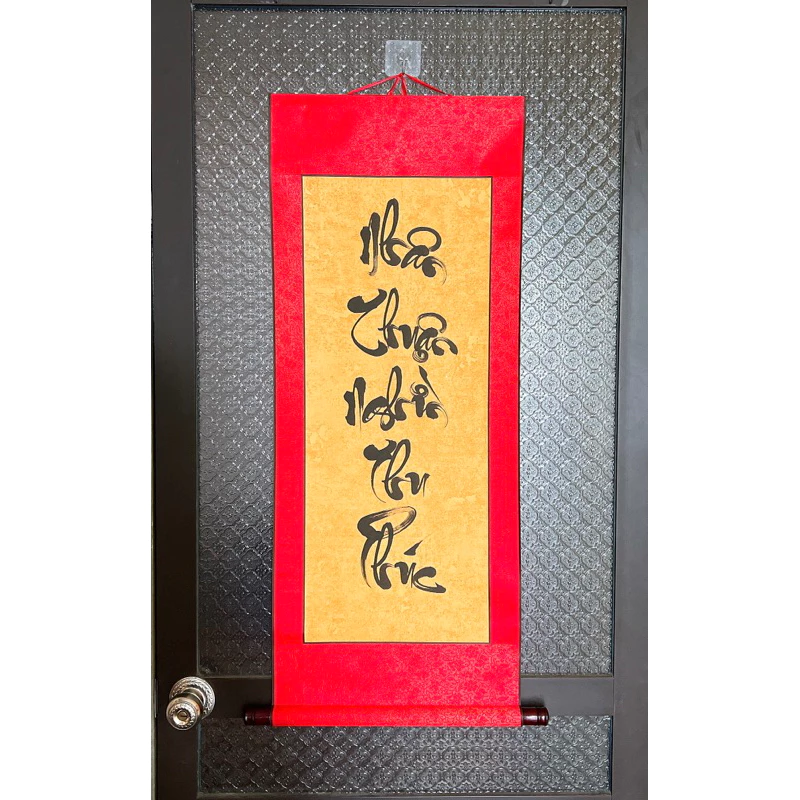 Nhân
Thuận
Nghìn
Thu
Phúc